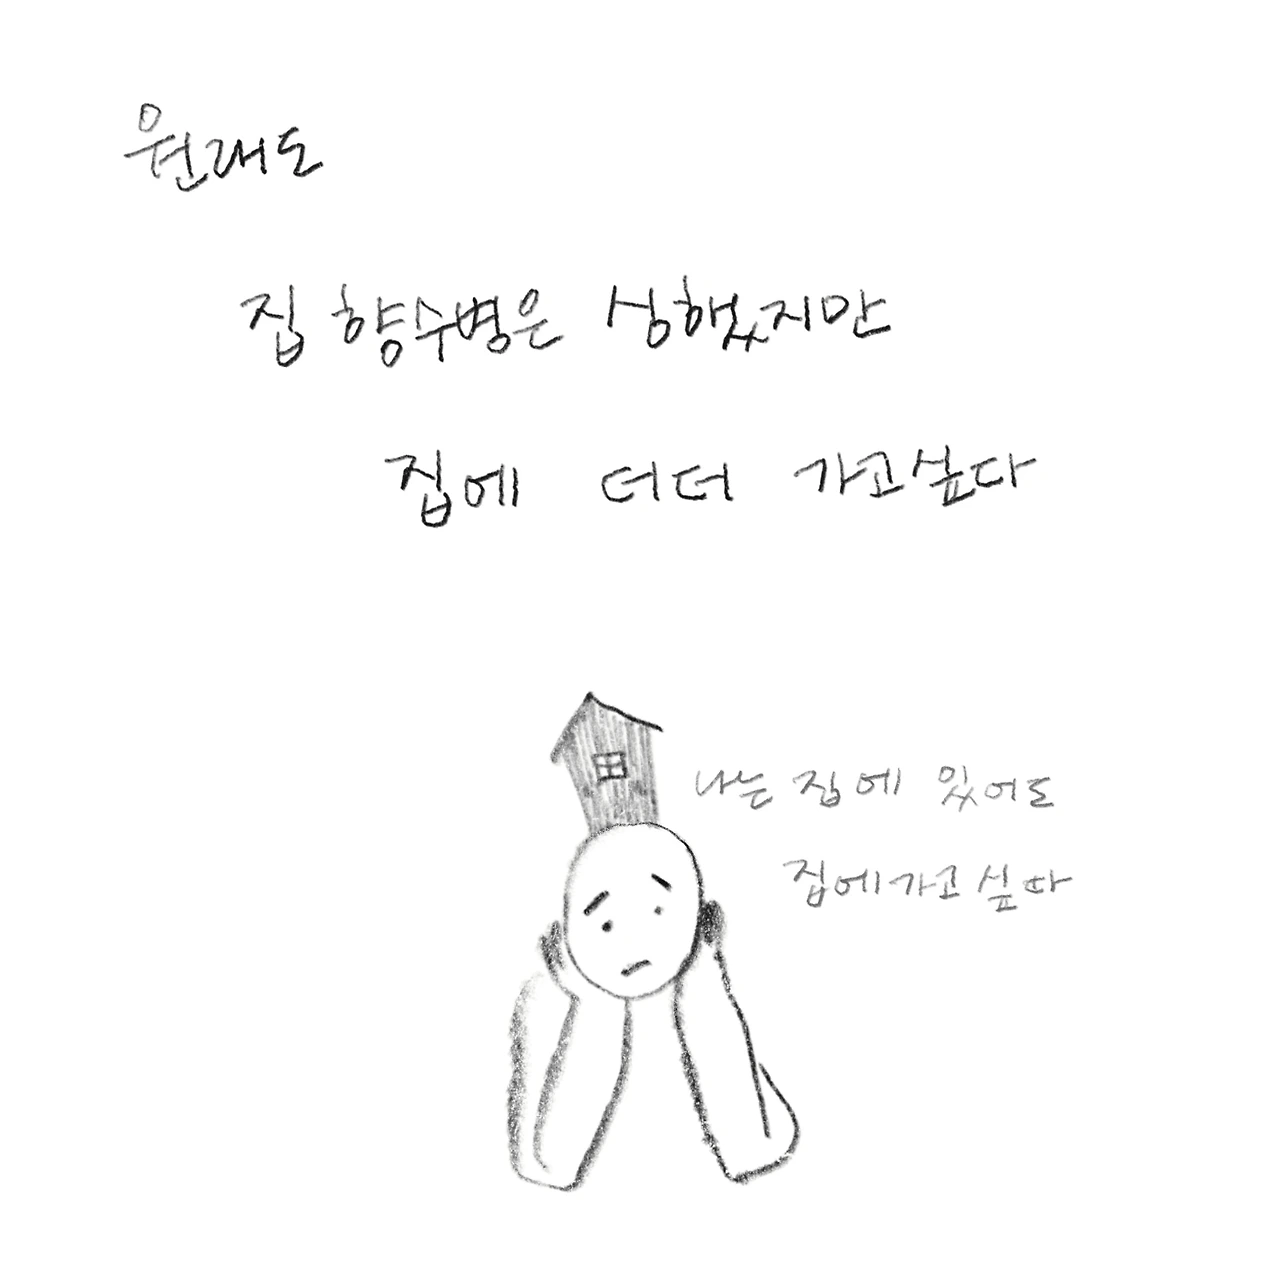 원래도
집 향수병은 심했지만
집에 더더 가고싶다
나는 집에 있어도
집에가고싶다